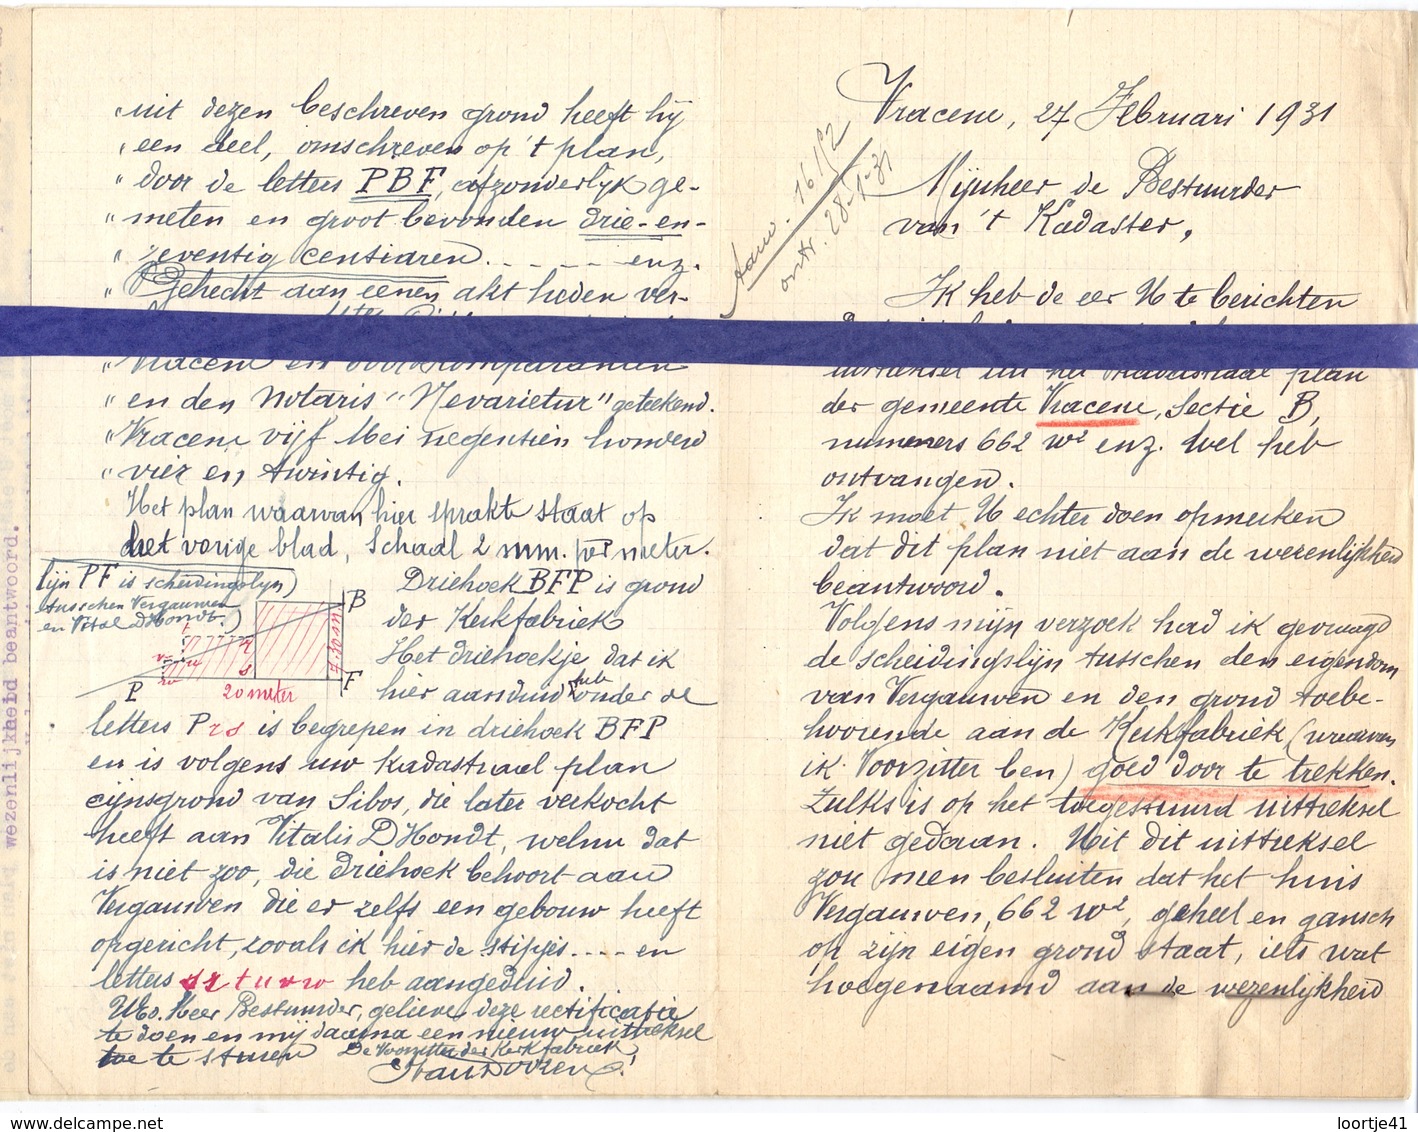 Vracene, 27 Februari 1931
Aanv. 16/2
ontv. 28-1-31
Mijnheer de Bestuurder
van 't Kadaster,
Ik heb de eer U te berichten
uittreksel uit het kadastraal plan
der gemeente Vracene, Sectie B,
nummers 662 w² enz. wel heb
ontvangen.
Ik moet U echter doen opmerken
dat dit plan niet aan de wezenlijkheid
beantwoord.
Volgens mijn verzoek had ik gevraagd
de scheidingslijn tusschen den eigendom
van Vergauwen en den grond toebe-
hoorende aan de Kerkfabriek, (waarvan
ik Voorzitter ben) goed door te trekken.
Zulks is op het toegestuurd uittreksel
niet gedaan. Uit dit uittreksel
zou men besluiten dat het huis
Vergauwen, 662 w², geheel en gansch
op zijn eigen grond staat, iets wat
hoegenaamd aan de wezenlijkheid
wezenlijkheid beantwoord.
"uit dezen beschreven grond heeft hij
"een deel, omschreven op 't plan,
"door de letters PBF, afzonderlijk ge-
"meten en groot bevonden drie-en-
"zeventig centiaren. - - - - enz.
"Gehecht aan eenen akt heden ver-
"Vracene en voor komparanten
"en den Notaris "Nevarietur" geteekend.
"Vracene vijf Mei negentien honderd
"vier en twintig.
Het plan waarvan hier sprake staat op
het vorige blad, Schaal 2 mm. per meter.
lijn PF is scheidingslijn)
tusschen Vergauwen
en Vital d'Hondt.)
B
F
P
r
s
t
u
v
w
20 meter
7.30 m
Driehoek BFP is grond
der Kerkfabriek
Het driehoekje dat ik
hier aanduid heb onder de
letters Prs is begrepen in driehoek BFP
en is volgens uw kadastraal plan
cijnsgrond van Sibos, die later verkocht
heeft aan Vitalis D'Hondt, welnu dat
is niet zoo, die driehoek behoort aan
Vergauwen die er zelfs een gebouw heeft
opgericht, zooals ik hier de stipjes .... en
letters srtuvw heb aangeduid.
UEd. Heer Bestuurder, gelieve deze rectificatie
te doen en mij daarna een nieuw uittreksel
toe te sturen De Voorzitter der Kerkfabriek
loortje41
www.delcampe.net